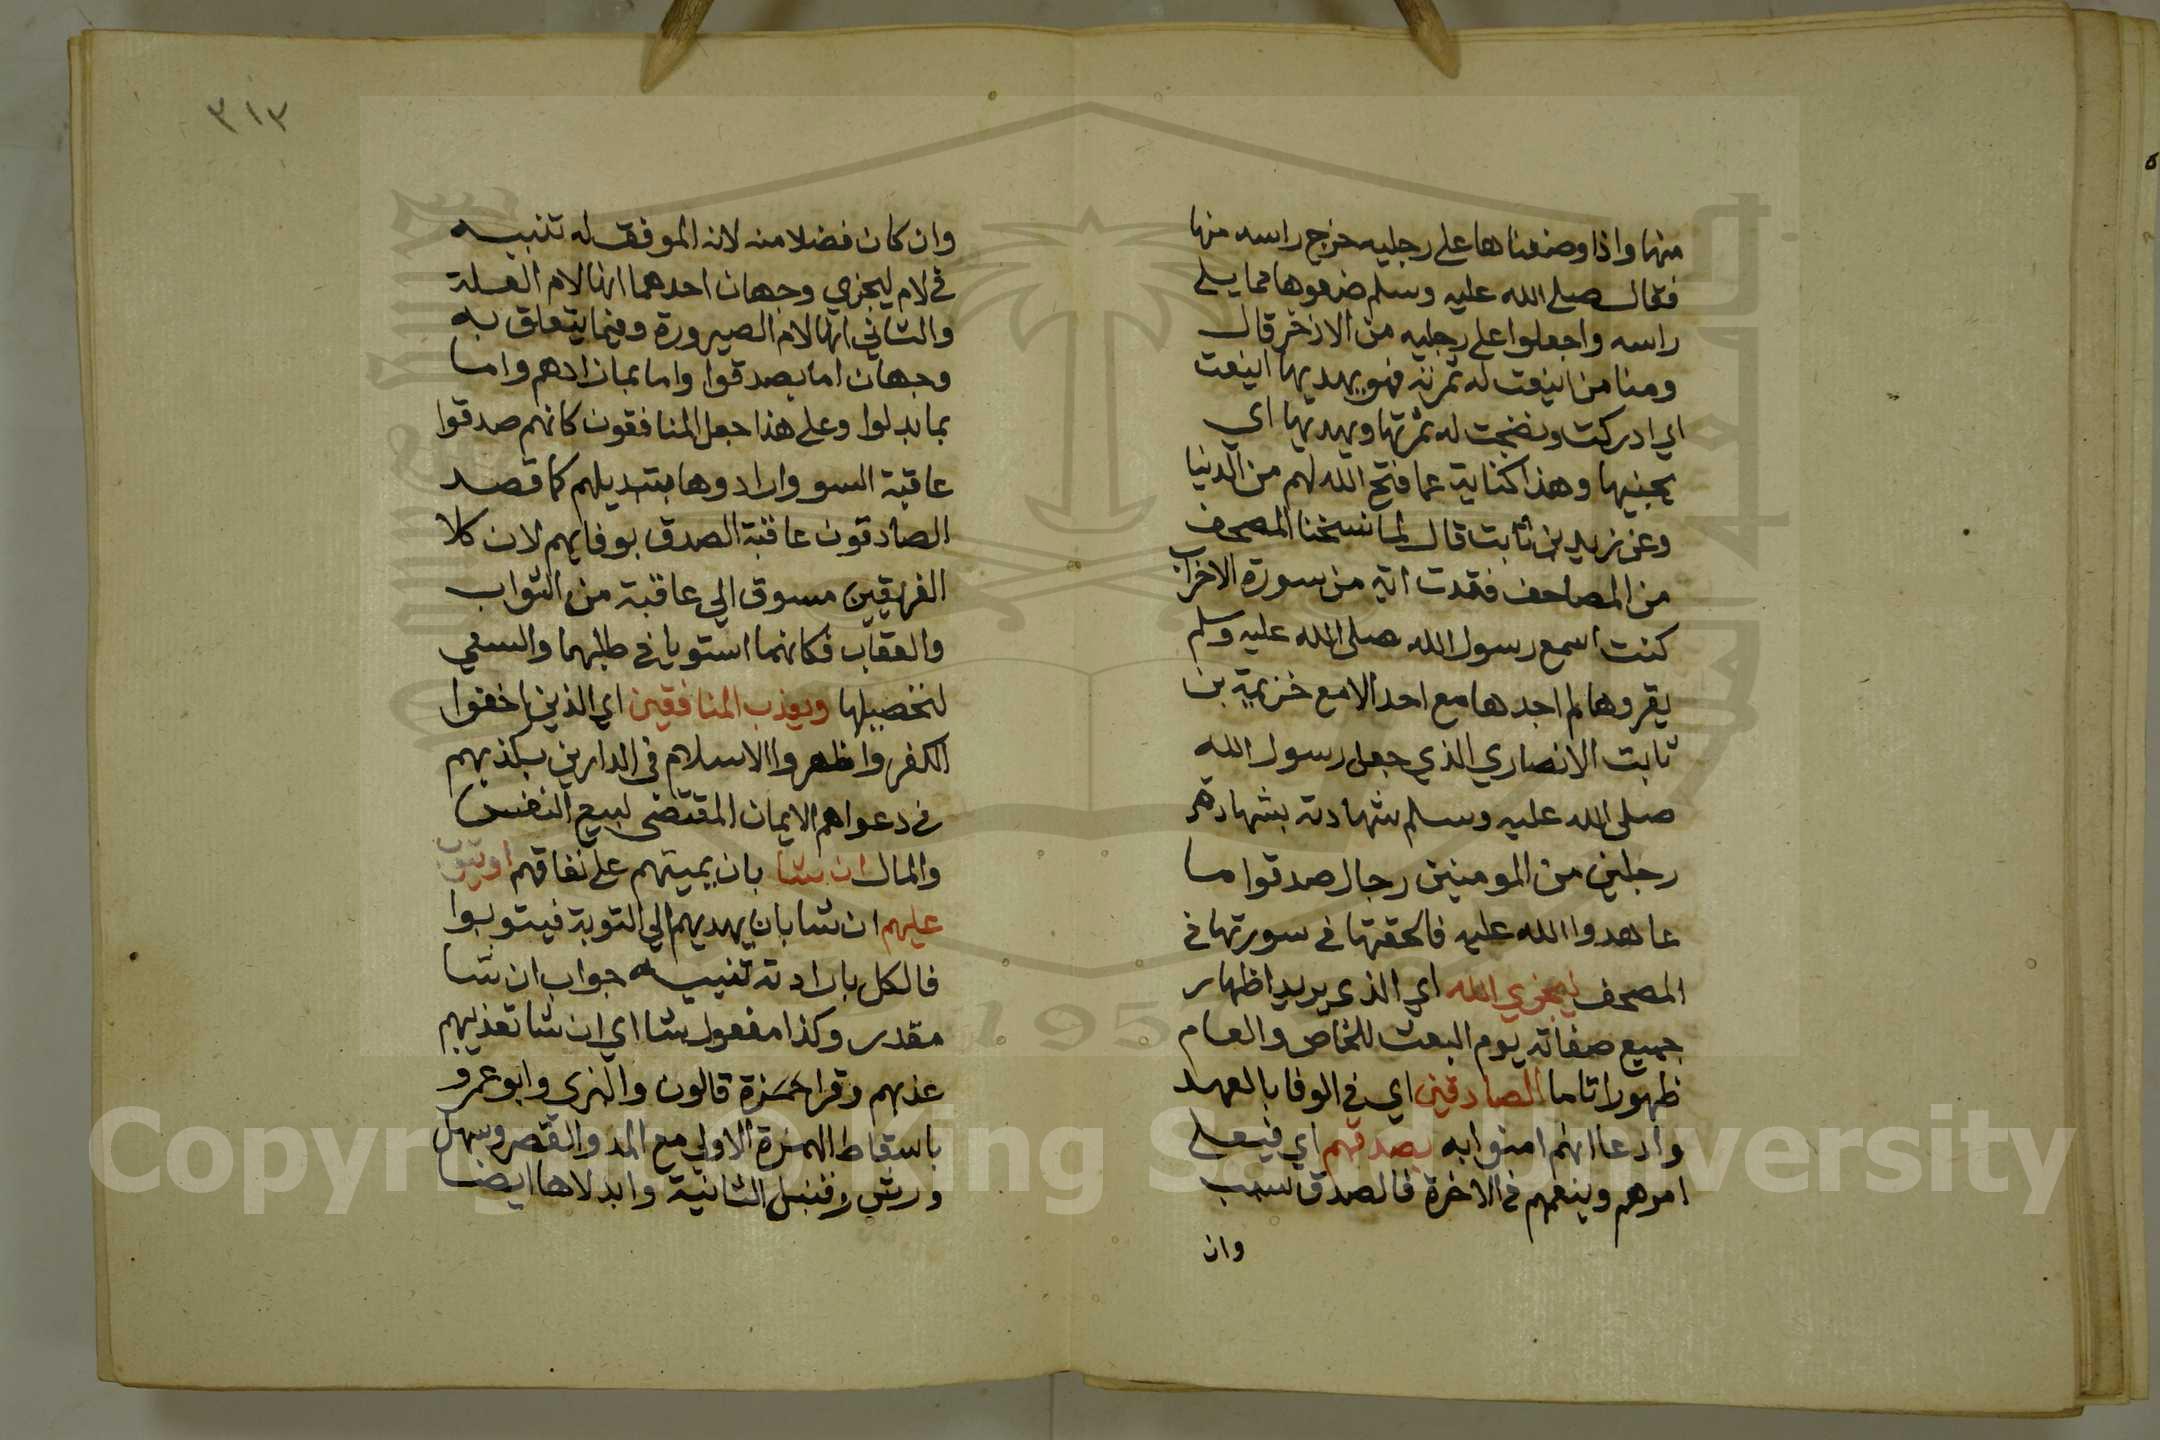 منها واذا وضعناها علي رجليه خرج راسه منها
فقال صلي الله عليه وسلم ضعوها مما يلي
راسه واجعلوا علي رجليه من الاذخر قال
ومنا من اينعت له ثمرته فهو يهديها اينعت
اي ادركت ونضجت له ثمرتها ويهديها اي
يجنيها وهذا كناية عما فتح الله لهم من الدنيا
وعن زيد بن ثابت قال لما نسخنا المصحف
من المصاحف فقدت اية من سورة الاحزاب
كنت اسمع رسول الله صلي الله عليه وسلم
يقروها لم اجدها مع احد الا مع خزيمة بن
ثابت الانصاري الذي جعل رسول الله
صلي الله عليه وسلم شهادته بشهادة
رجلين من المومنين رجال صدقوا ما
عاهدوا الله عليه فالحقتها في سورتها في
المصحف ليجزي الله اي الذي يريد اظهار
جميع صفاته يوم البعث للخاص والعام
ظهورا تاما الصادقين اي في الوفا بالعهد
وادعا انهم امنوا به بصدقهم اي فيعلي
امرهم وينعمهم في الاخرة فالصدق سبب
وان
٣١٣
وان كان فضلا منه لانه الموفق له تنبيه
في لام ليجزي وجهان احدهما انها لام العلة
والثاني انها لام الصيرورة وفيما يتعلق به
وجهان اما بصدقوا واما بما زادهم واما
بما بدلوا وعلي هذا جعل المنافقون كانهم صدقوا
عاقبة السو وارادوها بتبديلهم كما قصد
الصادقون عاقبة الصدق بوفايهم لان كلا
الفريقين مسوق الي عاقبة من الثواب
والعقاب فكانهما استويا في طلبهما والسعي
لتحصيلها ويعذب المنافقين اي الذين اخفوا
الكفر واظهروا الاسلام في الدارين بكذبهم
في دعواهم الايمان المقتضي لبيع النفس
والمال ان شا بان يميتهم علي نفاقهم او يتوب
عليهم ان شا بان يهديهم الي التوبة فيتوبوا
فالكل بارادته تنبيه جواب ان شا
مقدر وكذا مفعول شا اي ان شا تعذيبهم
عذبهم وقرا حمزة قالون والبزي وابو عمرو
باسقاط الهمزة الاولي مع المد والقصر وسهل
ورش وقنبل الثانية وابدلاها ايضا
Copyright © King Saud University
1957